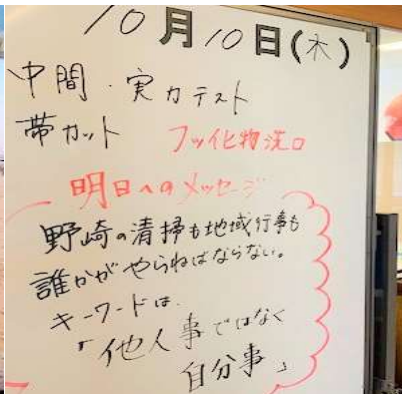 10月10日(木)
中間・実力テスト
帯カット フッ化物洗口
明日へのメッセージ
野崎の清掃も地域行事も
誰かがやらねばならない。
キーワードは、
「他人事ではなく
自分事」